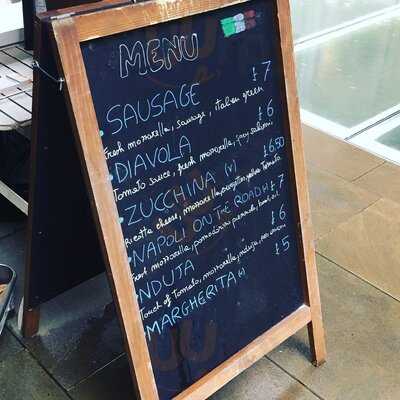 MENU
SAUSAGE £7
Fresh mozzarella, sausage, italian green
DIAVOLA £6
Tomato sauce, fresh mozzarella, spicy salami
ZUCCHINA (v) £6.50
Ricotta cheese, mozzarella, courgettes, yellow Tomato
NAPOLI ON THE ROAD £7
Fresh mozzarella, pomodorini, basil, oil
NDUTA £6
Touch of Tomato, mozzarella, nduja, red onion
MARGHERITA (v) £5